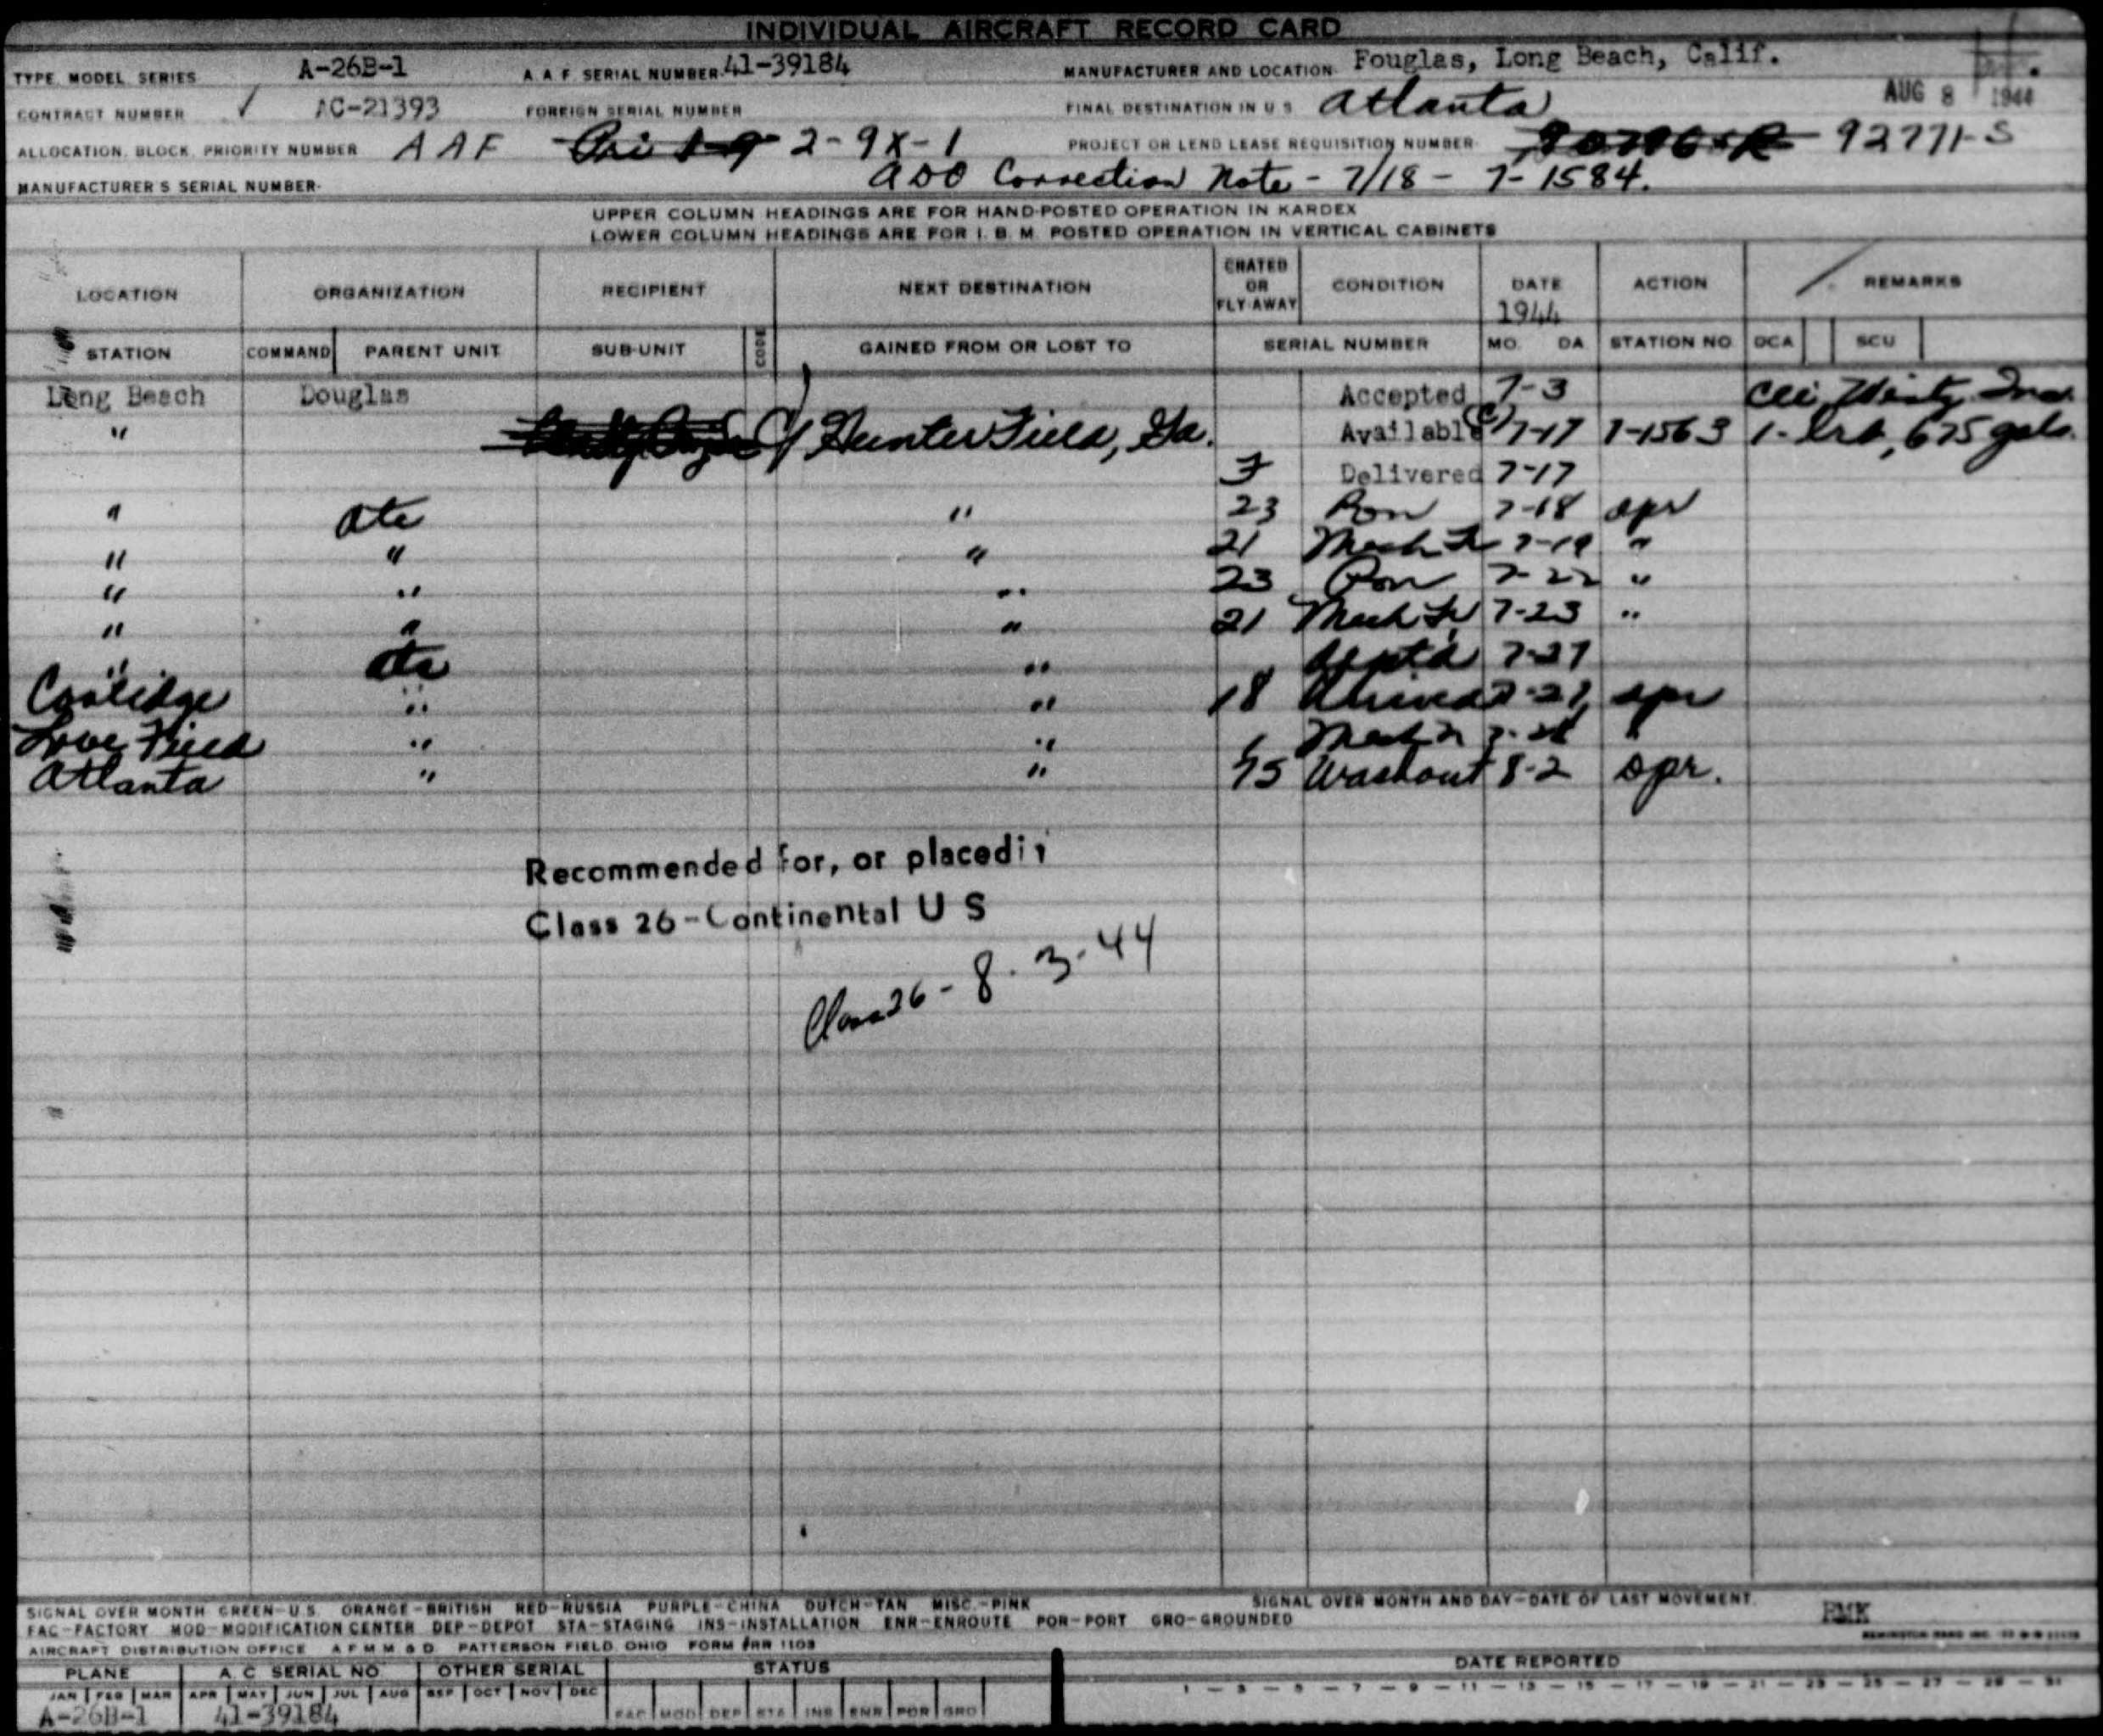 INDIVIDUAL AIRCRAFT RECORD CARD
TYPE, MODEL, SERIES A-26B-1 A.A.F. SERIAL NUMBER 41-39184 MANUFACTURER AND LOCATION Fouglas, Long Beach, Calif.
CONTRACT NUMBER ✓ AC-21393 FOREIGN SERIAL NUMBER FINAL DESTINATION IN U S Atlanta AUG 8 1944
ALLOCATION, BLOCK, PRIORITY NUMBER AAF 2-9X-1 PROJECT OR LEND LEASE REQUISITION NUMBER 92771-S
MANUFACTURER'S SERIAL NUMBER- ADO Correction Note - 7/18 - 7-1584.
UPPER COLUMN HEADINGS ARE FOR HAND-POSTED OPERATION IN KARDEX
LOWER COLUMN HEADINGS ARE FOR I. B. M. POSTED OPERATION IN VERTICAL CABINETS
LOCATION ORGANIZATION RECIPIENT NEXT DESTINATION CRATED OR FLY-AWAY CONDITION DATE 1944 ACTION REMARKS
STATION COMMAND PARENT UNIT SUB-UNIT CODE GAINED FROM OR LOST TO SERIAL NUMBER MO. DA. STATION NO. DCA SCU
Long Beach Douglas Accepted 7-3
" Hunter Field, Ga. Available 7-17 7-1563 675 gals.
F Delivered 7-17
" Atc " 23 Ron 7-18 opr
" " " 21 Mech 7-19 "
" " " 23 Ron 7-22 "
" " " 21 Mech 7-23 "
" Atc " 7-27
Coolidge " " 18 Arrived 7-27 opr
Love Field " " Mech "
Atlanta " " Washout 8-2 opr.
Recommended for, or placed in
Class 26-Continental U S
Class 26 - 8-3-44
SIGNAL OVER MONTH GREEN-U.S. ORANGE-BRITISH RED-RUSSIA PURPLE-CHINA DUTCH-TAN MISC.-PINK SIGNAL OVER MONTH AND DAY-DATE OF LAST MOVEMENT.
FAC-FACTORY MOD-MODIFICATION CENTER DEP-DEPOT STA-STAGING INS-INSTALLATION ENR-ENROUTE POR-PORT GRO-GROUNDED
AIRCRAFT DISTRIBUTION OFFICE A F M M & D PATTERSON FIELD, OHIO
PLANE A. C. SERIAL NO. OTHER SERIAL STATUS DATE REPORTED
JAN FEB MAR APR MAY JUN JUL AUG SEP OCT NOV DEC 1 - 3 - 5 - 7 - 9 - 11 - 13 - 15 - 17 - 19 - 21 - 23 - 25 - 27 - 29 - 31
A-26B-1 41-39184 FAC MOD DEP STA INS ENR POR GRO